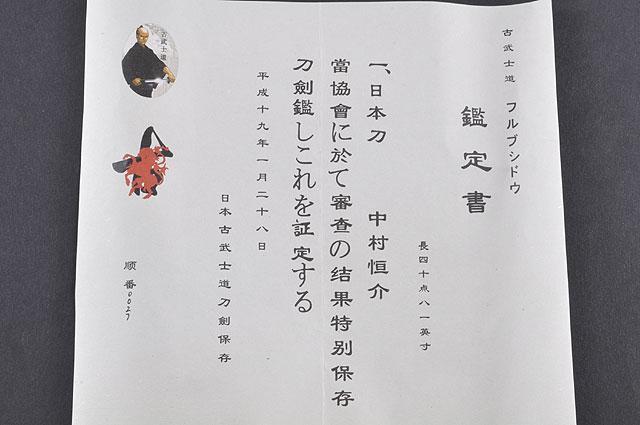 古武士道 フルブシドウ
鑑定書
長四十点八一英寸
一、日本刀 中村恒介
當協會に於て審查の结果特別保存
刀劍鑑しこれを証定する
平成十九年一月二十八日
日本古武士道刀劍保存
古武士道
順番0027